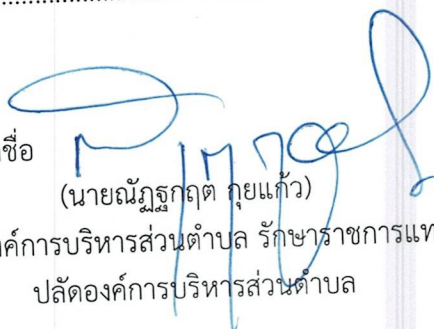 ชื่อ
(นายณัฏฐกฤต กุยแก้ว)
องค์การบริหารส่วนตำบล รักษาราชการแท
ปลัดองค์การบริหารส่วนตำบล